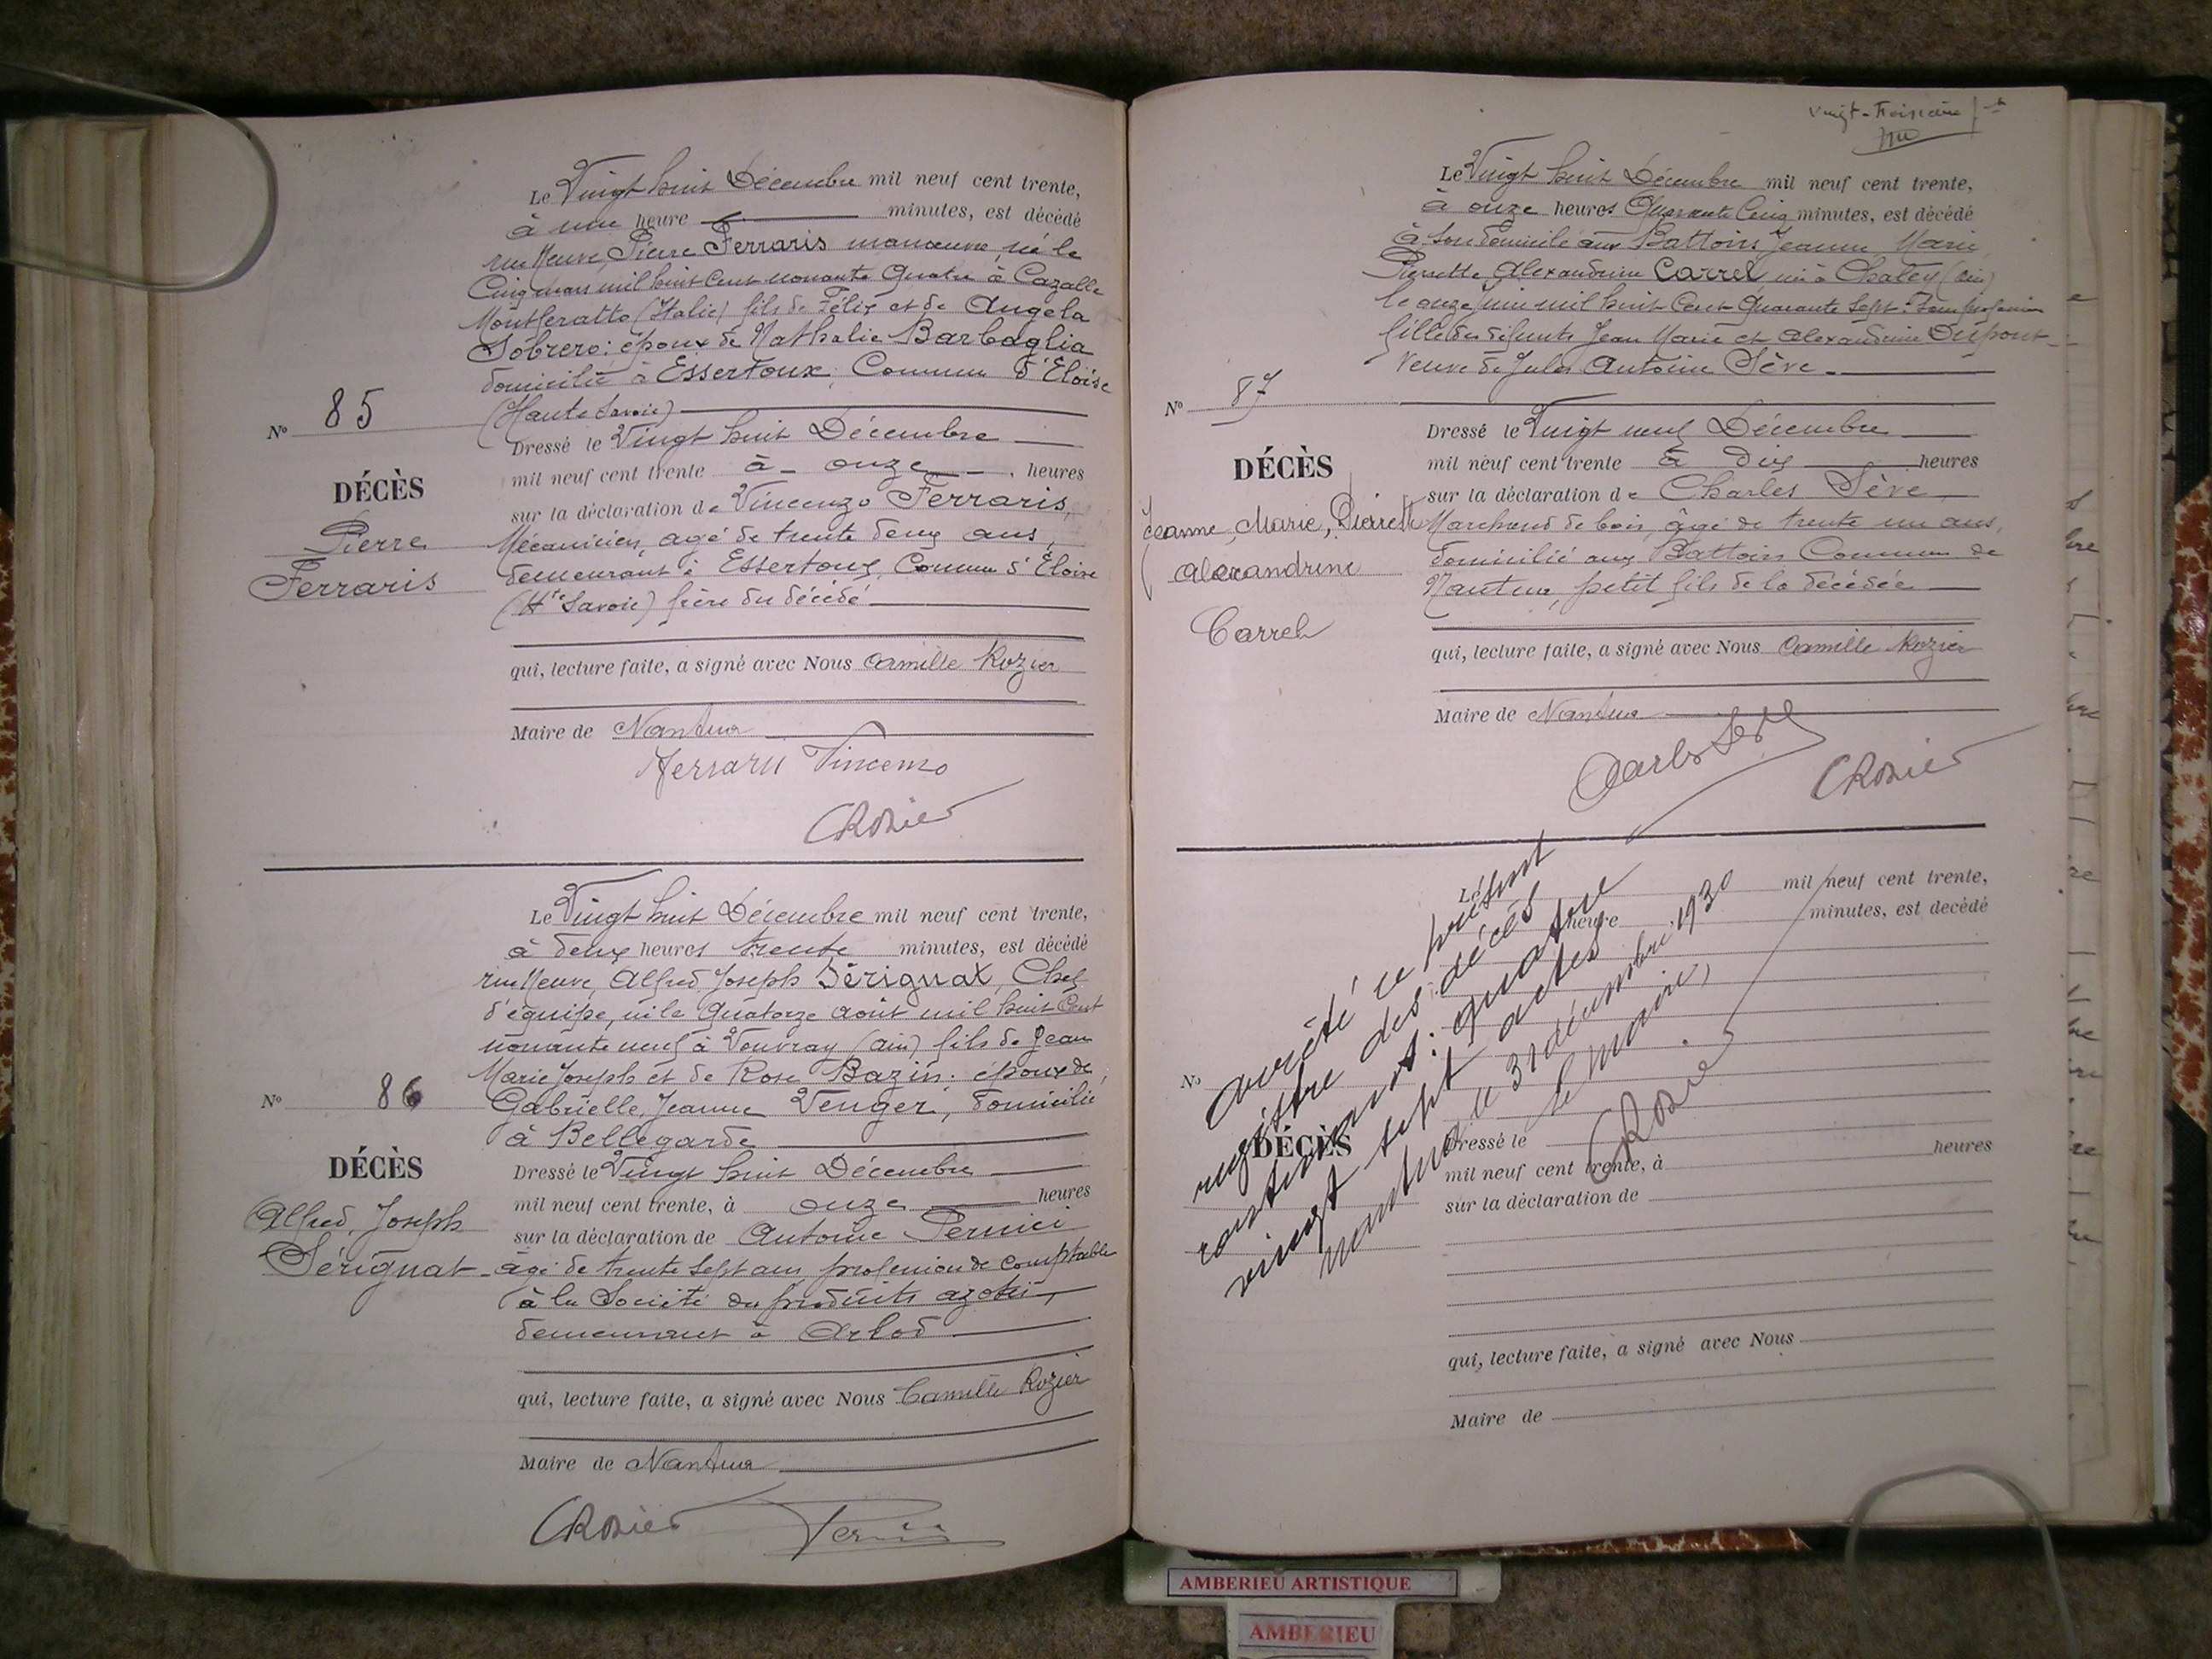 Le Vingt huit Décembre mil neuf cent trente,
à une heure minutes, est décédé
rue Neuve, Pierre Ferraris manœuvre, né le
Cinq mars mil huit cent nonante quatre à Cazalle
Montferatto (Italie) fils de Félix et de Angela
Sobrero: époux de Nathalie Barbaglia
domicilié à Essertoux, Commune d'Eloise
(Haute Savoie)
N° 85
DÉCÈS
Pierre
Ferraris
Dressé le Vingt huit Décembre
mil neuf cent trente à onze heures
sur la déclaration de Vincenzo Ferraris,
Mécanicien, agé de trente deux ans,
demeurant à Essertoux, Commune d'Eloise
(Hte Savoie) frère du décédé
qui, lecture faite, a signé avec Nous Camille Rozier
Maire de Nantua
Ferraris Vincenzo
CRozier
Le Vingt huit Décembre mil neuf cent trente,
à deux heures trente minutes, est décédé
rue Neuve, Alfred Joseph Sérignat, Chef
d'équipe, né le quatorze août mil huit Cent
nonante neuf à Vouvray (ain) fils de Jean
Marie Joseph et de Rose Bazin: époux de
Gabrielle, Jeanne Venger, domicilié
à Bellegarde
N° 86
DÉCÈS
Alfred, Joseph
Sérignat
Dressé le Vingt huit Décembre
mil neuf cent trente, à onze heures
sur la déclaration de Antoine Pernici
âgé de trente sept ans, profession de Comptable
à la Société des produits azotés,
demeurant à Arlod
qui, lecture faite, a signé avec Nous Camille Rozier
Maire de Nantua
CRozier
Vingt-Troisième
Le Vingt huit Décembre mil neuf cent trente,
à onze heures Quarante Cinq minutes, est décédé
à son domicile aux Battoirs Jeanne, Marie,
Pierrette Alexandrine Carrel, née à Chaley (ain)
le onze juin mil huit Cent Quarante Sept: Sans profession
fille des défunts Jean Marie et Alexandrine Dupont
Veuve de Jules Antoine Sève
N° 87
DÉCÈS
Jeanne, Marie, Pierrette
Alexandrine
Carrel
Dressé le Vingt neuf Décembre
mil neuf cent trente à Dix heures
sur la déclaration de Charles Sève
Marchand de bois, âgé de trente un ans,
domicilié aux Battoirs Commune de
Nantua, petit fils de la décédée
qui, lecture faite, a signé avec Nous Camille Rozier
Maire de Nantua
Charles Sève
CRozier
Le mil neuf cent trente,
heure minutes, est décédé
arrêté ce présent
registre des décès
contenant: quatre
vingt sept actes
Nantua le 31 décembre 1930
Le Maire,
CRozier
N°
DÉCÈS
Dressé le
mil neuf cent trente, à heures
sur la déclaration de
qui, lecture faite, a signé avec Nous
Maire de
AMBERIEU ARTISTIQUE
AMBERIEU